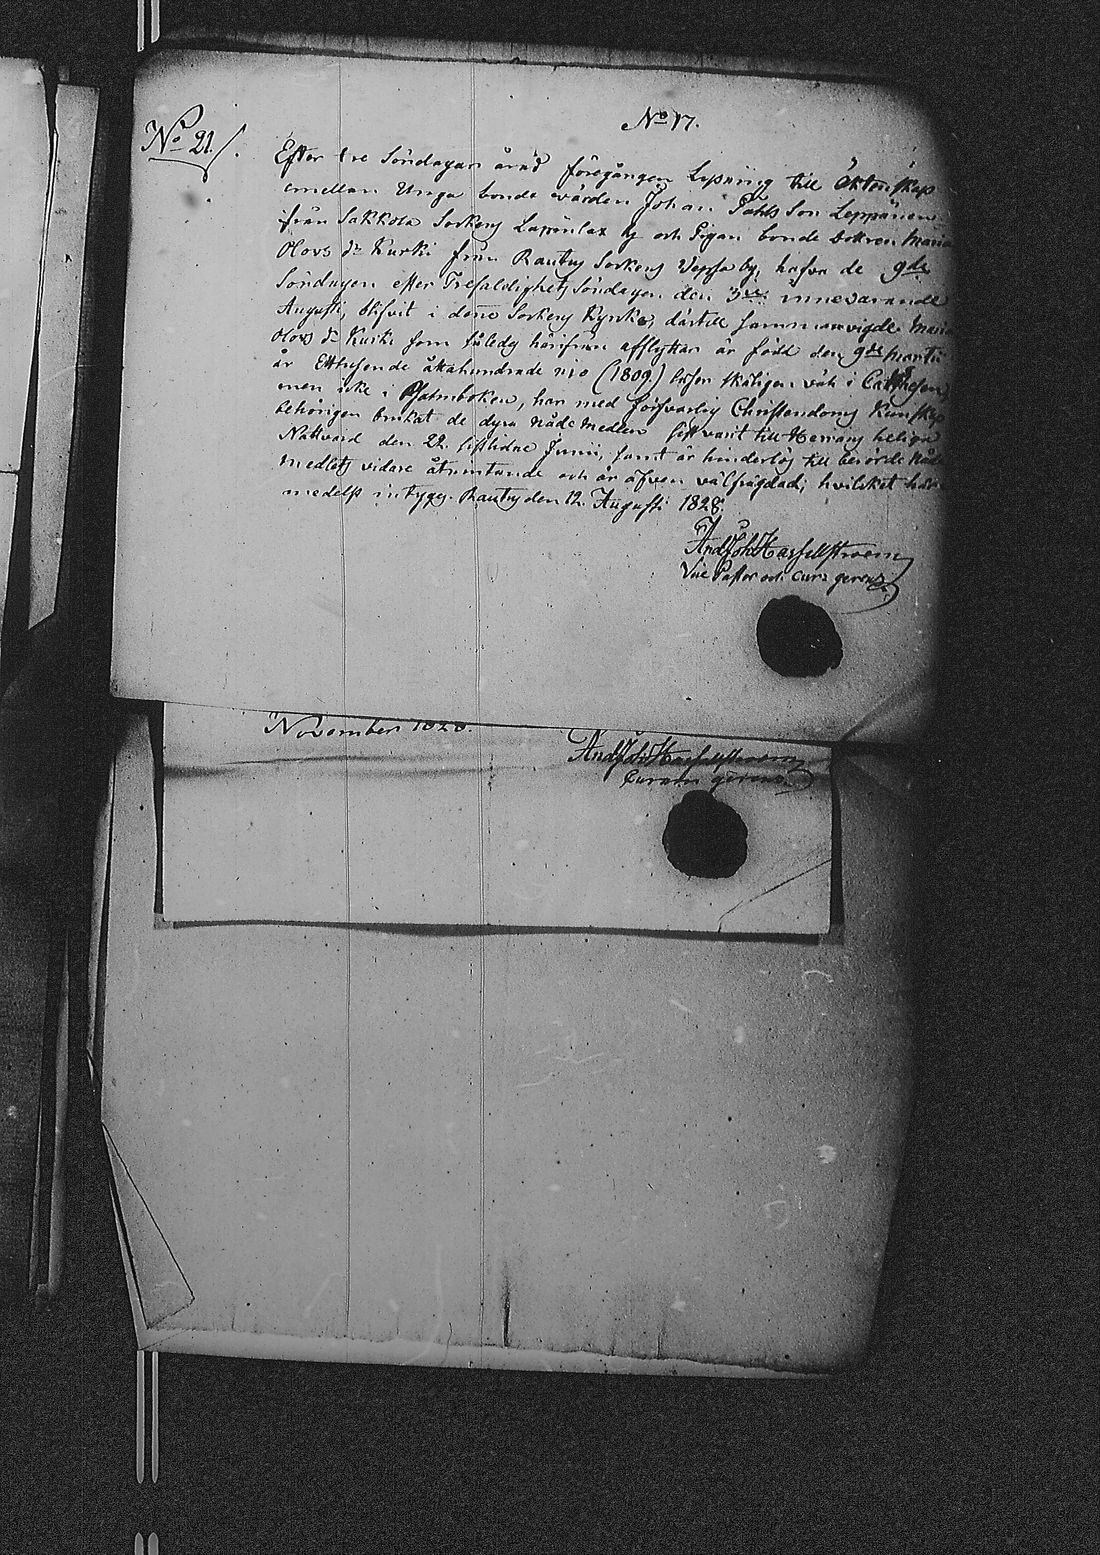 No 17.
No 21/.
Efter tre Söndagar å rad föregången Lysning till Äktenskap
emellan Unga bonde wärden Johan Påhls Son Leppänen
från Sakkola Sockens Lapinlax by och Pigan bonde Dottren Maria
Olovs dr Kurki från Rautus Sockens Vepsa by, hafva de 9de
Söndagen efter Trefaldighets Söndagen den 3die innevarande
Augusti, blifvit i denne Sockens Kyrka, därtill sammanvigde. Maria
Olovs dr Kurki som således härifrån afflyttar är född den 9de Martii
år Ettusende åttahundrade nio (1809) läser skäligen väl i Cathesen,
men icke i Psalmboken, har med försvarlig Christendoms Kunskap
behörigen brukat de dyra nådemedlen sist varit till Herrans heliga
Nattvard den 22. sistlidne Junii, samt är hinderlös till berörde Nåde
medlets vidare åtnjutande och är äfven välfrägdad; hvilket här
medelst intygas. Rautus den 12. Augusti 1828.
And Joh Hasselstroem
Vice Pastor och cura gerens
November 1828.
And Joh Hasselstroem
Curam gerens